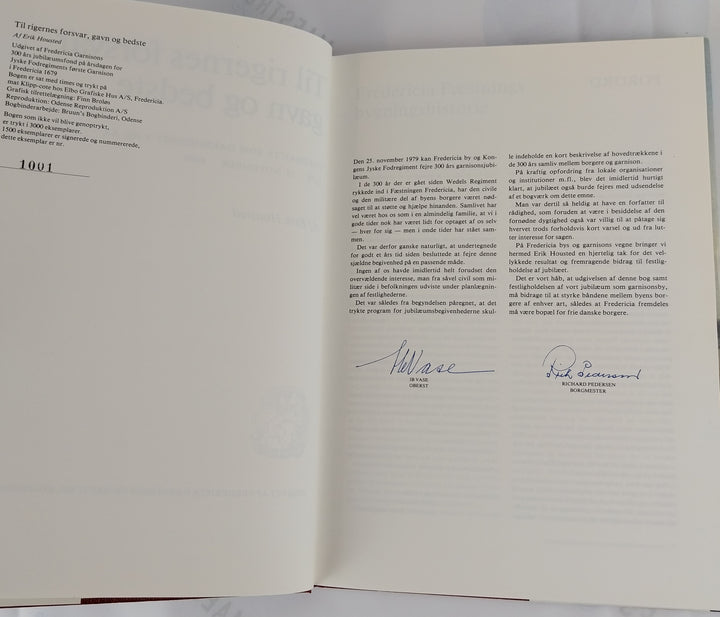 Til rigernes forsvar, gavn og bedste
Af Erik Housted
Udgivet af Fredericia Garnisons
300 års jubilæumsfond på årsdagen for
Jyske Fodregiments første Garnison
i Fredericia 1679
Bogen er sat med times og trykt på
mat Klipp-cote hos Elbo Grafiske Hus A/S, Fredericia.
Grafisk tilrettelægning: Finn Broløs
Reproduktion: Odense Reproduktion A/S
Bogbinderarbejde: Bruun's Bogbinderi, Odense
Bogen som ikke vil blive genoptrykt,
er trykt i 3000 eksemplarer.
1500 eksemplarer er signerede og nummererede,
dette eksemplar er nr.
1001
Den 25. november 1979 kan Fredericia by og Kon-
gens Jyske Fodregiment fejre 300 års garnisonsjubi-
læum.
I de 300 år der er gået siden Wedels Regiment
rykkede ind i Fæstningen Fredericia, har den civile
og den militære del af byens borgere været nød-
saget til at støtte og hjælpe hinanden. Samlivet har
vel været hos os som i en almindelig familie, at vi i
gode tider nok har været lidt for optaget af os selv
— hver for sig — men i onde tider har stået sam-
men.
Det var derfor ganske naturligt, at undertegnede
for godt et års tid siden besluttede at fejre denne
sjældne begivenhed på en passende måde.
Ingen af os havde imidlertid helt forudset den
overvældende interesse, man fra såvel civil som mi-
litær side i befolkningen udviste under planlægnin-
gen af festlighederne.
Det var således fra begyndelsen påregnet, at det
trykte program for jubilæumsbegivenhederne skul-
le indeholde en kort beskrivelse af hovedtrækkene i
de 300 års samliv mellem borgere og garnison.
På kraftig opfordring fra lokale organisationer
og institutioner m.fl., blev det imidlertid hurtigt
klart, at jubilæet også burde fejres med udsendelse
af et bogværk om dette emne.
Man var dertil så heldig at have en forfatter til
rådighed, som foruden at være i besiddelse af den
fornødne dygtighed også var villig til at påtage sig
hvervet trods forholdsvis kort varsel og ud fra lut-
ter interesse for sagen.
På Fredericia bys og garnisons vegne bringer vi
hermed Erik Housted en hjertelig tak for det vel-
lykkede resultat og fremragende bidrag til festlig-
holdelse af jubilæet.
Det er vort håb, at udgivelsen af denne bog samt
festligholdelsen af vort jubilæum som garnisonsby,
må bidrage til at styrke båndene mellem byens bor-
gere af enhver art, således at Fredericia fremdeles
må være bopæl for frie danske borgere.
Ib Vase
IB VASE
OBERST
Rich Pedersen
RICHARD PEDERSEN
BORGMESTER